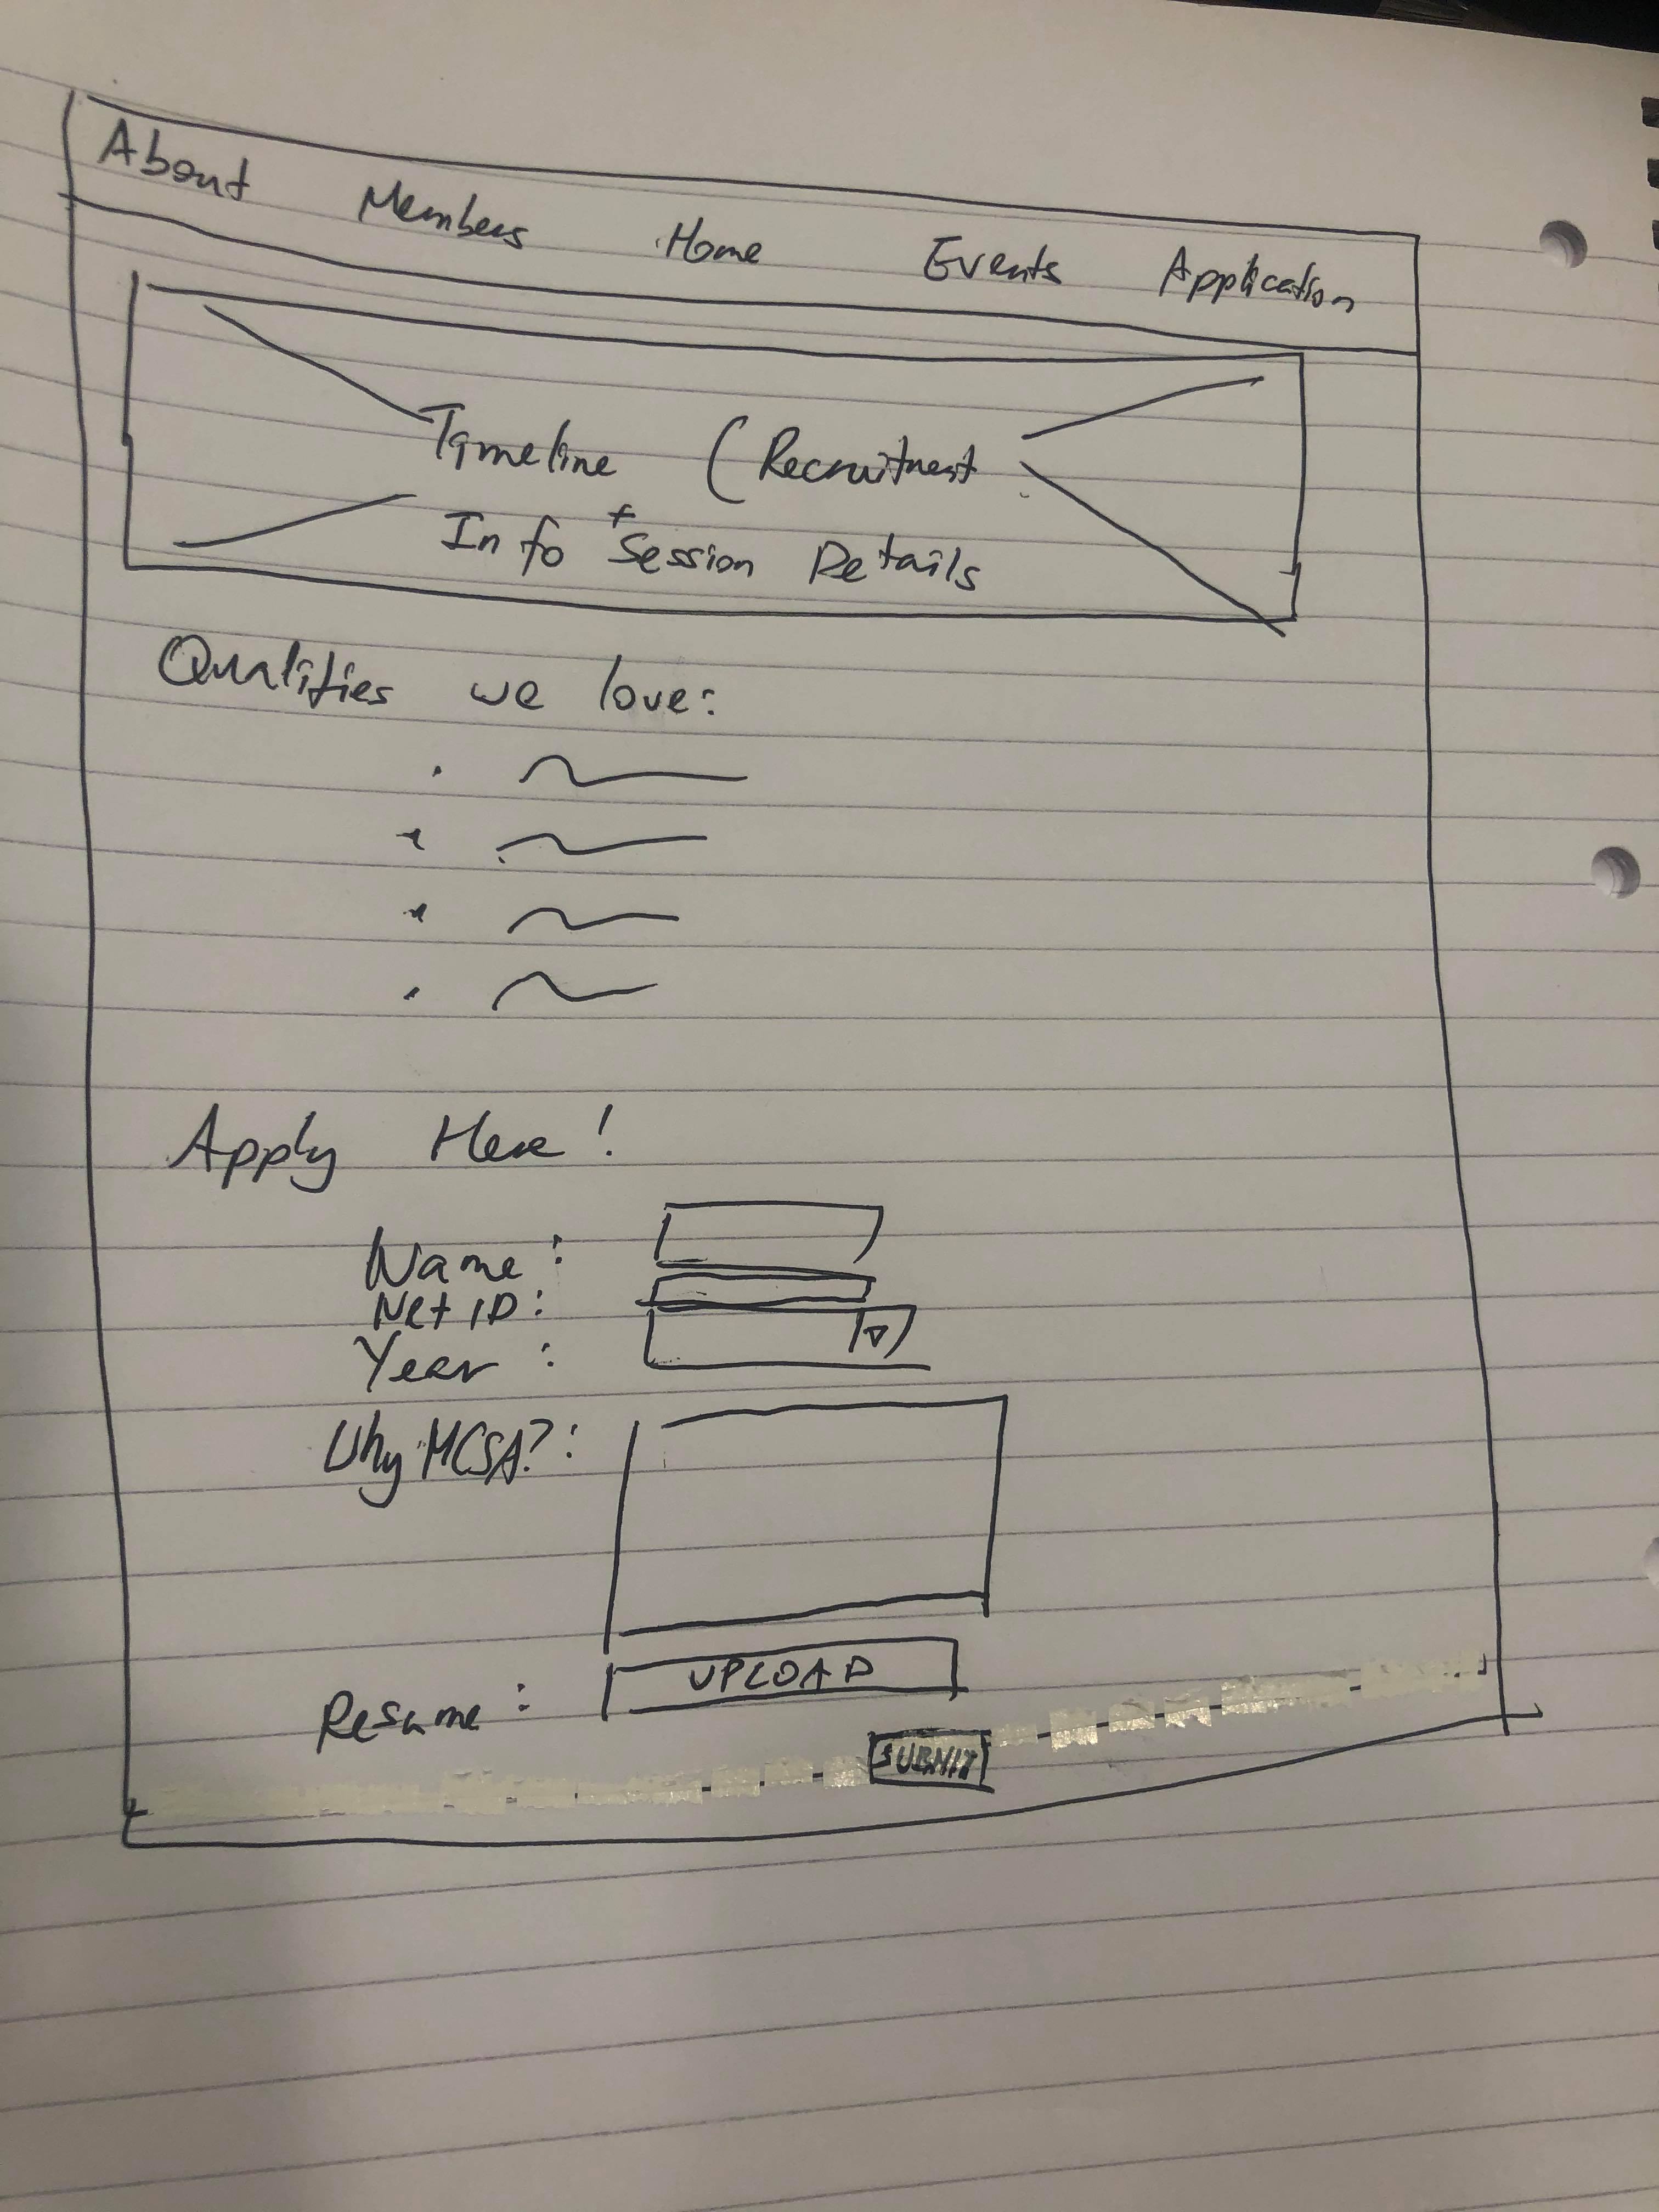 About Members Home Events Application
Timeline (Recruitment
+
Info Session Details
Qualities we love:
Apply Here!
Name:
Net ID:
Year:
Why MCSA?:
Resume: UPLOAD
SUBMIT